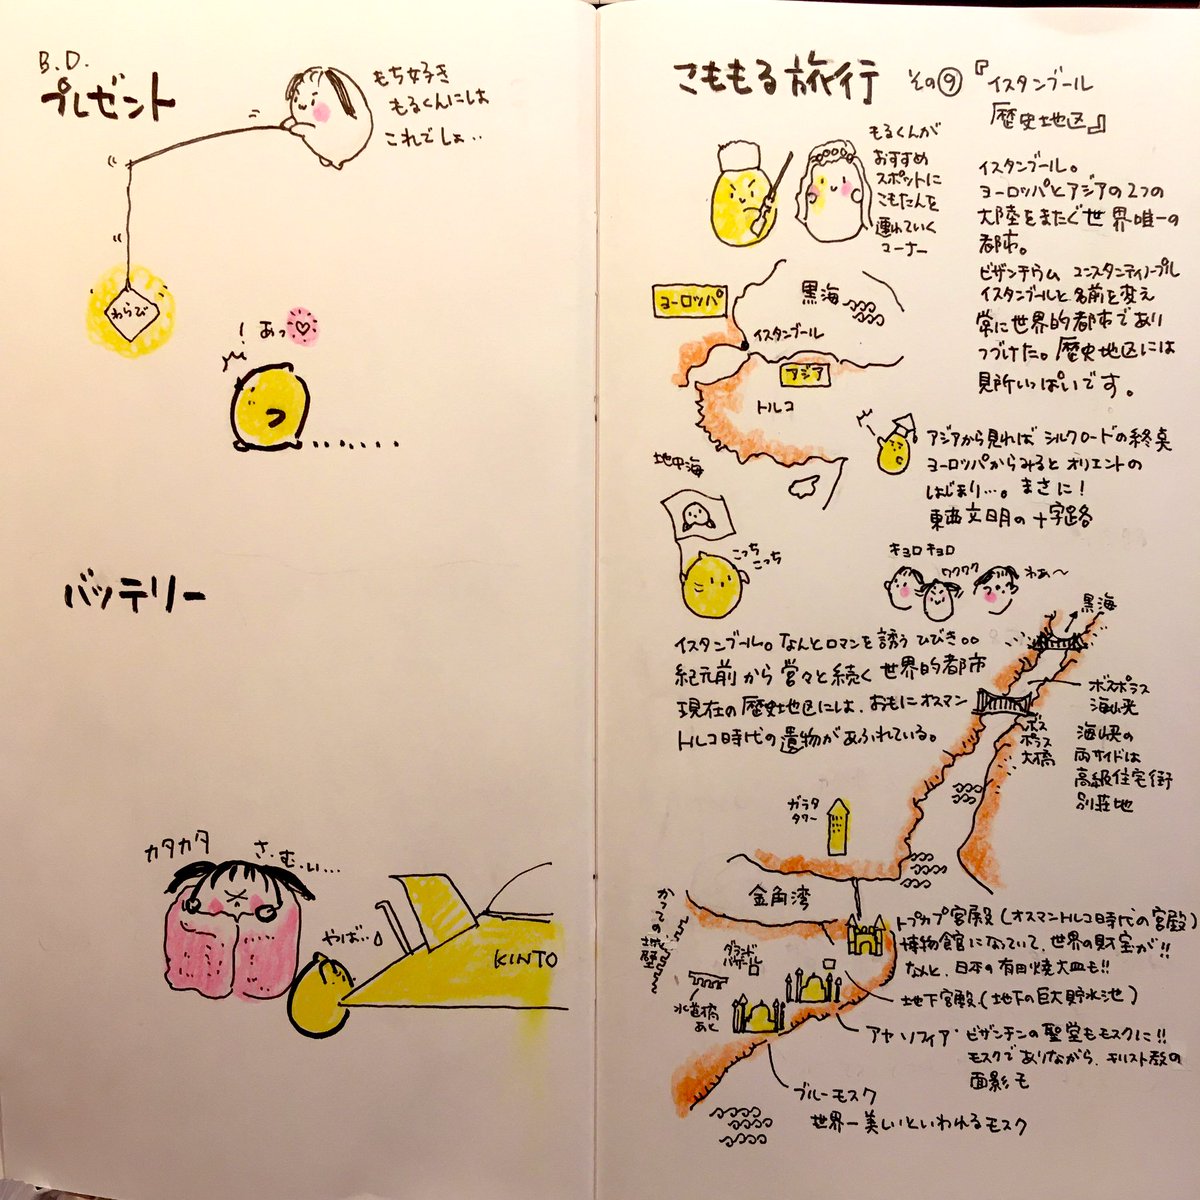 B.D.
プレゼント
もち好き
もるくんには
これでしょ‥
わらび
! あっ♡
バッテリー
カタカタ
さ・む・い…
やば…
KINTO
こももる旅行 その⑨『イスタンブール
歴史地区』
もるくんが
おすすめ
スポットに
こもたんを
連れていく
コーナー
イスタンブール。
ヨーロッパとアジアの2つの
大陸をまたぐ世界唯一の
都市。
ビザンチウム コンスタンティノープル
イスタンブールと名前を変え
常に世界的都市であり
つづけた。歴史地区には
見所いっぱいです。
ヨーロッパ
黒海
イスタンブール
アジア
トルコ
地中海
アジアから見れば シルクロードの終点
ヨーロッパからみると オリエントの
はじまり…。まさに!
東西文明の十字路
こっち
こっち
キョロキョロ
ワクワク
わぁ〜
イスタンブール。なんとロマンを誘うひびき。。
紀元前から営々と続く世界的都市
現在の歴史地区には、おもにオスマン
トルコ時代の遺物があふれている。
黒海
ボスポラス
海峡
ボス
ポラス
大橋
海峡の
両サイドは
高級住宅街
別荘地
ガラタ
タワー
金角湾
かつての城壁
グランド
バザール
水道橋
あと
トプカプ宮殿(オスマントルコ時代の宮殿)
博物館になっていて、世界の財宝が!!
なんと、日本の有田焼大皿も!!
地下宮殿(地下の巨大貯水池)
アヤソフィア・ビザンチンの聖堂もモスクに!!
モスクでありながら、キリスト教の
面影も
ブルーモスク
世界一美しいといわれるモスク